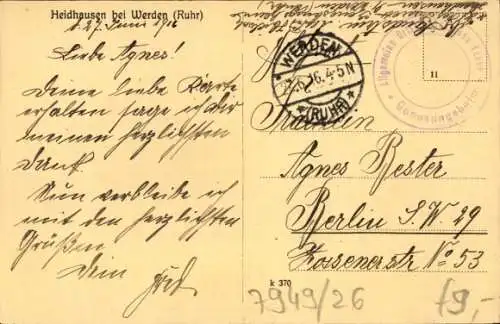 Heidhausen bei Werden (Ruhr)
d. 27. Juni 1916
Liebe Agnes!
Deine liebe Karte
erhalten sage ich dir
meinen herzlichsten
Dank.
Nun verbleibe ich
mit den herzlichsten
Grüßen
Dein
WERDEN
16. 4-5 N
(RUHR)
Genesungsheim
11
Fräulein
Agnes Rester
Berlin S.W. 29
Zossenerstr. No 53
k 370
7949/26
f9,-